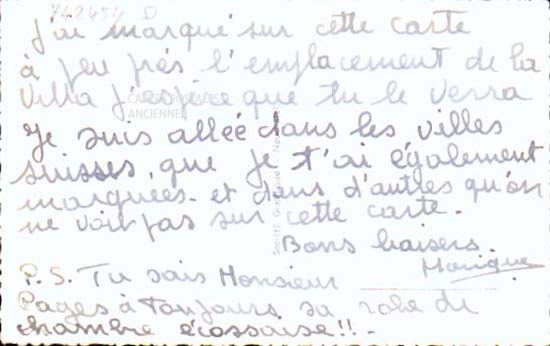 742454 D
j'ai marqué sur cette carte
à peu prés l'emplacement de la
villa j'espère que tu le verra
CARTES POSTALES
ANCIENNES
Je suis allée dans les villes
suisses, que je t'ai également
marquées. et dans d'autres qu'on
ne voit pas sur cette carte.
Bons baisers.
Monique
P.S. Tu sais Monsieur
Pages à toujours sa robe de
chambre écossaise!!.
Société